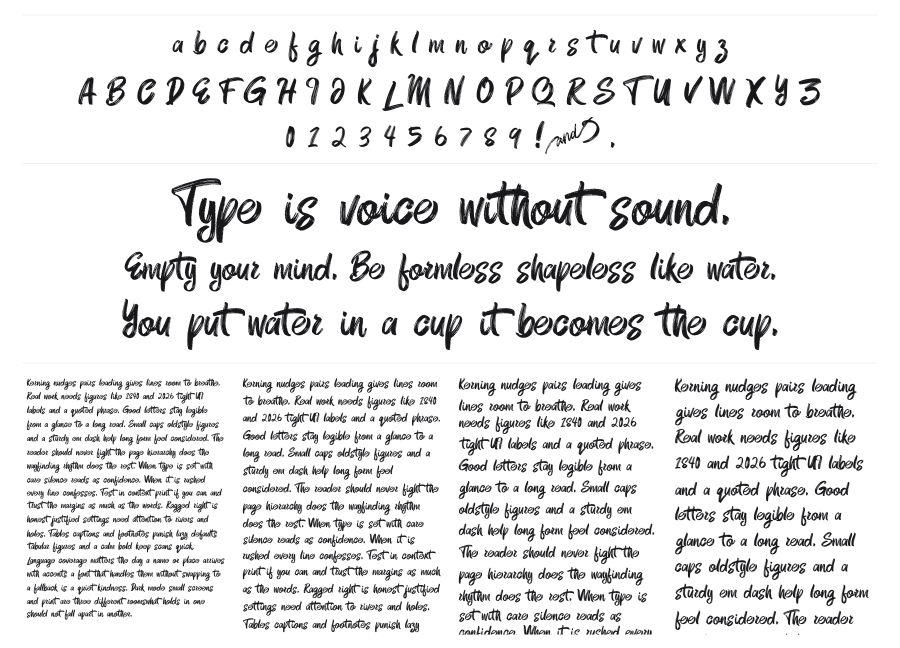 a b c d e f g h i j k l m n o p q r s t u v w x y z
A B C D E F G H I J K L M N O P Q R S T U V W X Y Z
0 1 2 3 4 5 6 7 8 9 ! and .
Type is voice without sound.
Empty your mind. Be formless shapeless like water.
You put water in a cup it becomes the cup.
Kerning nudges pairs leading gives lines room to breathe.
Real work needs figures like 1840 and 2026 tight UI
labels and a quoted phrase. Good letters stay legible
from a glance to a long read. Small caps oldstyle figures
and a sturdy em dash help long form feel considered. The
reader should never fight the page hierarchy does the
wayfinding rhythm does the rest. When type is set with
care silence reads as confidence. When it is rushed
every line confesses. Test in context print if you can and
trust the margins as much as the words. Ragged right is
honest justified settings need attention to rivers and
holes. Tables captions and footnotes punish lazy defaults
tabular figures and a calm bold keep scans quick.
Language coverage matters the day a name or place arrives
with accents a font that handles them without swapping to
a fallback is a quiet kindness. Dark mode small screens
and print are three different rooms what holds in one
should not fall apart in another.
Kerning nudges pairs leading gives lines room
to breathe. Real work needs figures like 1840
and 2026 tight UI labels and a quoted phrase.
Good letters stay legible from a glance to a
long read. Small caps oldstyle figures and a
sturdy em dash help long form feel
considered. The reader should never fight the
page hierarchy does the wayfinding rhythm
does the rest. When type is set with care
silence reads as confidence. When it is
rushed every line confesses. Test in context
print if you can and trust the margins as much
as the words. Ragged right is honest justified
settings need attention to rivers and holes.
Tables captions and footnotes punish lazy
Kerning nudges pairs leading gives
lines room to breathe. Real work
needs figures like 1840 and 2026
tight UI labels and a quoted phrase.
Good letters stay legible from a
glance to a long read. Small caps
oldstyle figures and a sturdy em
dash help long form feel considered.
The reader should never fight the
page hierarchy does the wayfinding
rhythm does the rest. When type is
set with care silence reads as
confidence. When it is rushed every
Kerning nudges pairs leading
gives lines room to breathe.
Real work needs figures like
1840 and 2026 tight UI labels
and a quoted phrase. Good
letters stay legible from a
glance to a long read. Small
caps oldstyle figures and a
sturdy em dash help long form
feel considered. The reader